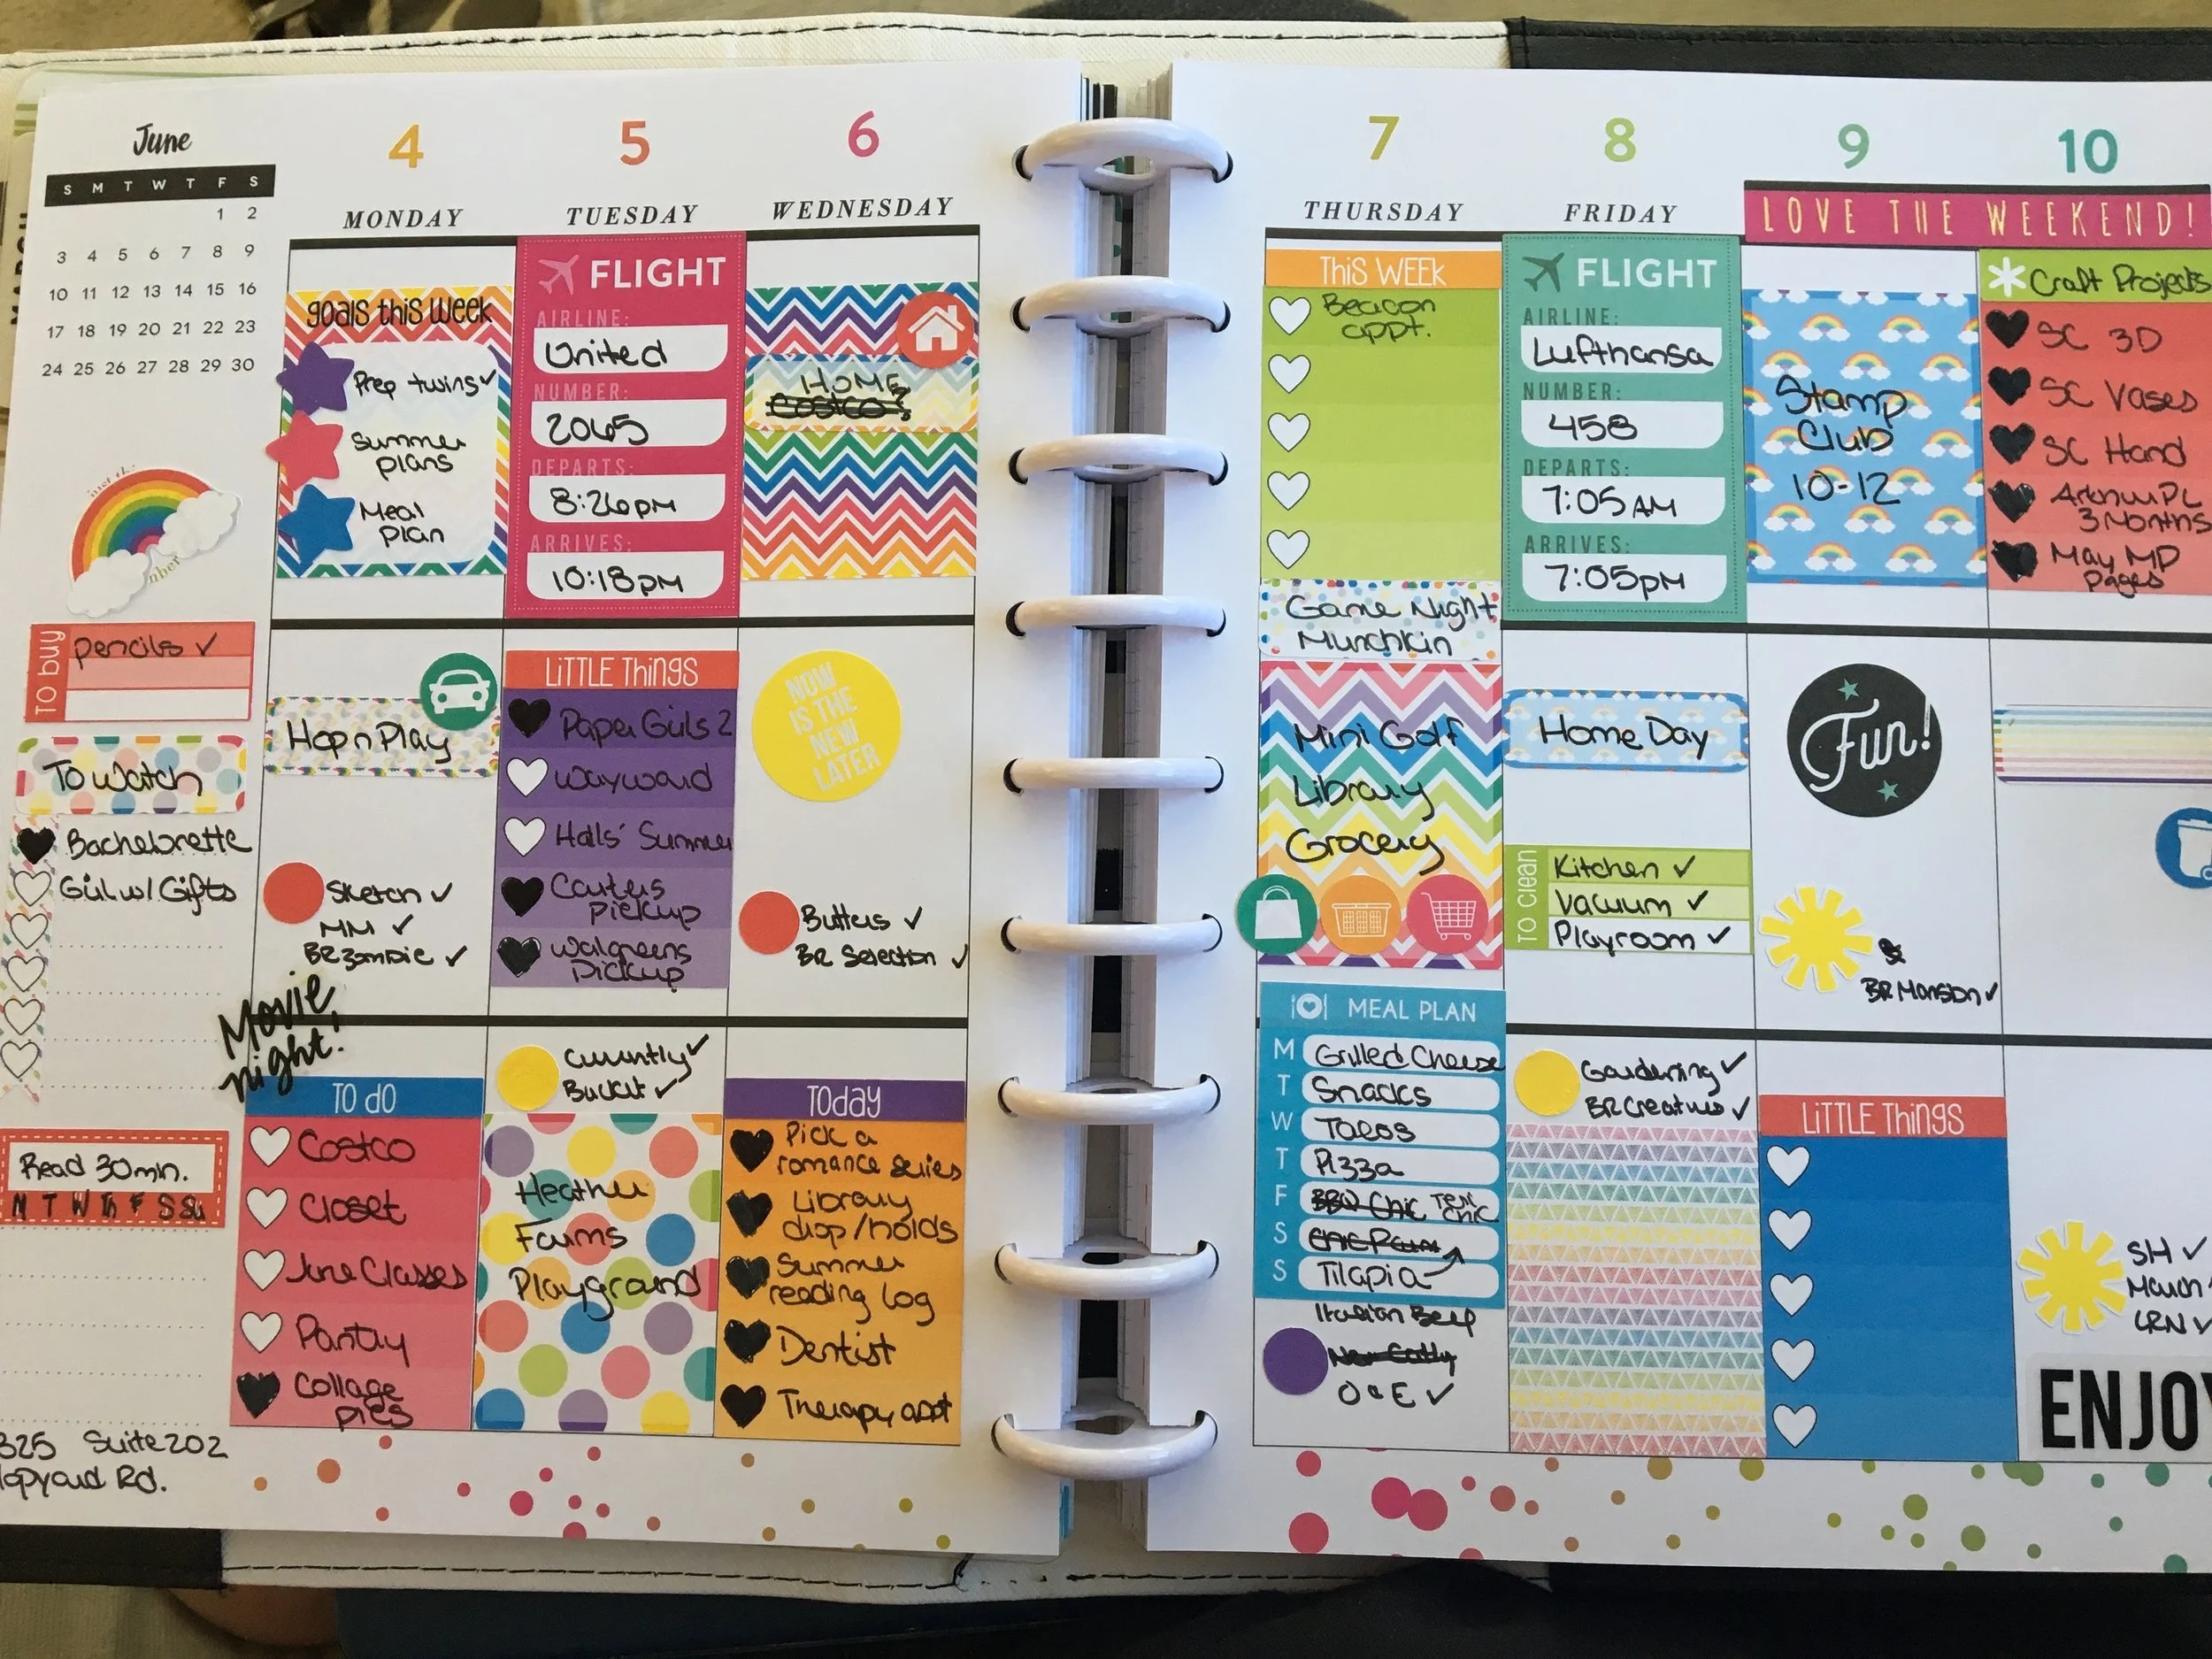 June
S M T W T F S
1 2
3 4 5 6 7 8 9
10 11 12 13 14 15 16
17 18 19 20 21 22 23
24 25 26 27 28 29 30
TO buy
pencils ✓
To Watch
Bachelorette
Girl w/ Gifts
Read 30min.
M T W Th F S Su
325 Suite 202
Rd.
4
MONDAY
goals this week
Prep twins ✓
Summer
plans
Meal
plan
Hop n Play
Sketch ✓
MM ✓
BR Zombie ✓
Movie
night!
TO dO
Costco
Closet
June Classes
Pantry
Collage
pics
5
TUESDAY
FLIGHT
AIRLINE:
United
NUMBER:
2065
DEPARTS:
8:26pm
ARRIVES:
10:18pm
LiTTLE THings
Paper Girls 2
Wayward
Halls' Summer
Carters
pickup
Walgreens
Pickup
Currently ✓
Bucket ✓
Heather
Farms
Playground
6
WEDNESDAY
HOME
Costco?
NOW
IS THE
NEW
LATER
Butters ✓
BR Selection ✓
TOday
Pick a
romance series
Library
drop/holds
Summer
reading log
Dentist
Therapy appt
7
THURSDAY
THiS WEEK
Beacon
appt.
Game Night
Munchkin
Mini Golf
Library
Grocery
MEAL PLAN
M Grilled Cheese
T Snacks
W Tacos
T Pizza
F BBQ Chic Teri Chic
S
S Tilapia
Italian Beef
O & E ✓
8
FRIDAY
FLIGHT
AIRLINE:
Lufthansa
NUMBER:
458
DEPARTS:
7:05AM
ARRIVES:
7:05pM
Home Day
TO clean
Kitchen ✓
Vacuum ✓
Playroom ✓
Gardening ✓
BR Creatures ✓
9
LOVE THE WEEKEND!
Stamp
Club
10-12
Fun!
BR Mansion ✓
LiTTLE THings
10
Craft Projects
SC 3D
SC Vases
SC Hand
PL
3 Months
May MP
pages
SH ✓
March
LRN ✓
ENJOY